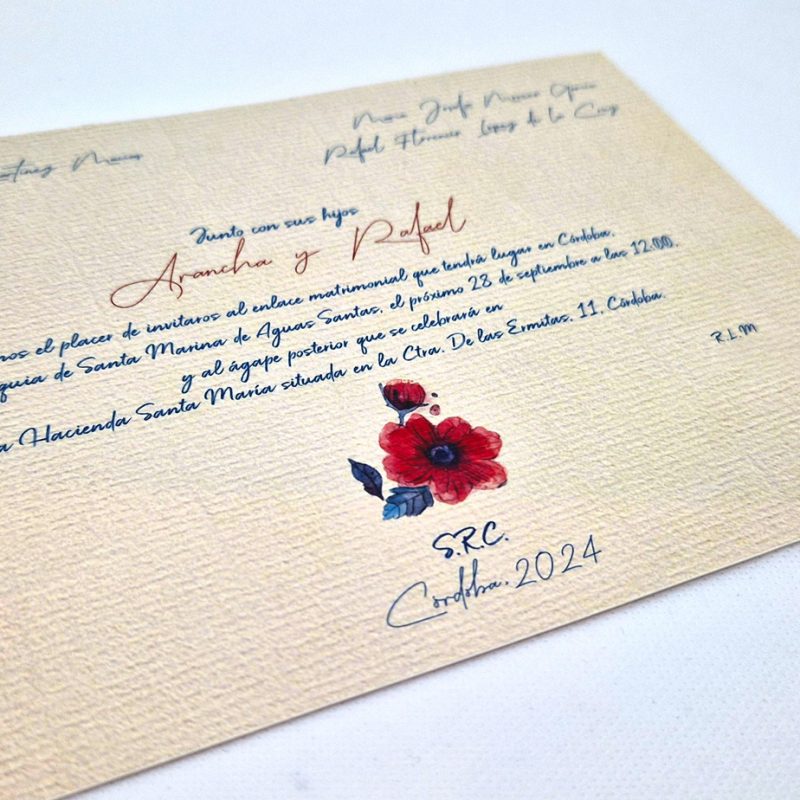 María Josefa Moreno García
Martínez Macías
Rafael Florencio López de la Cruz
Junto con sus hijos
Arancha y Rafael
el placer de invitaros al enlace matrimonial que tendrá lugar en Córdoba,
de Santa Marina de Aguas Santas, el próximo 28 de septiembre a las 12:00,
y al ágape posterior que se celebrará en
Hacienda Santa María situada en la Ctra. De las Ermitas, 11, Córdoba.
R.L.M
S.R.C.
Córdoba, 2024